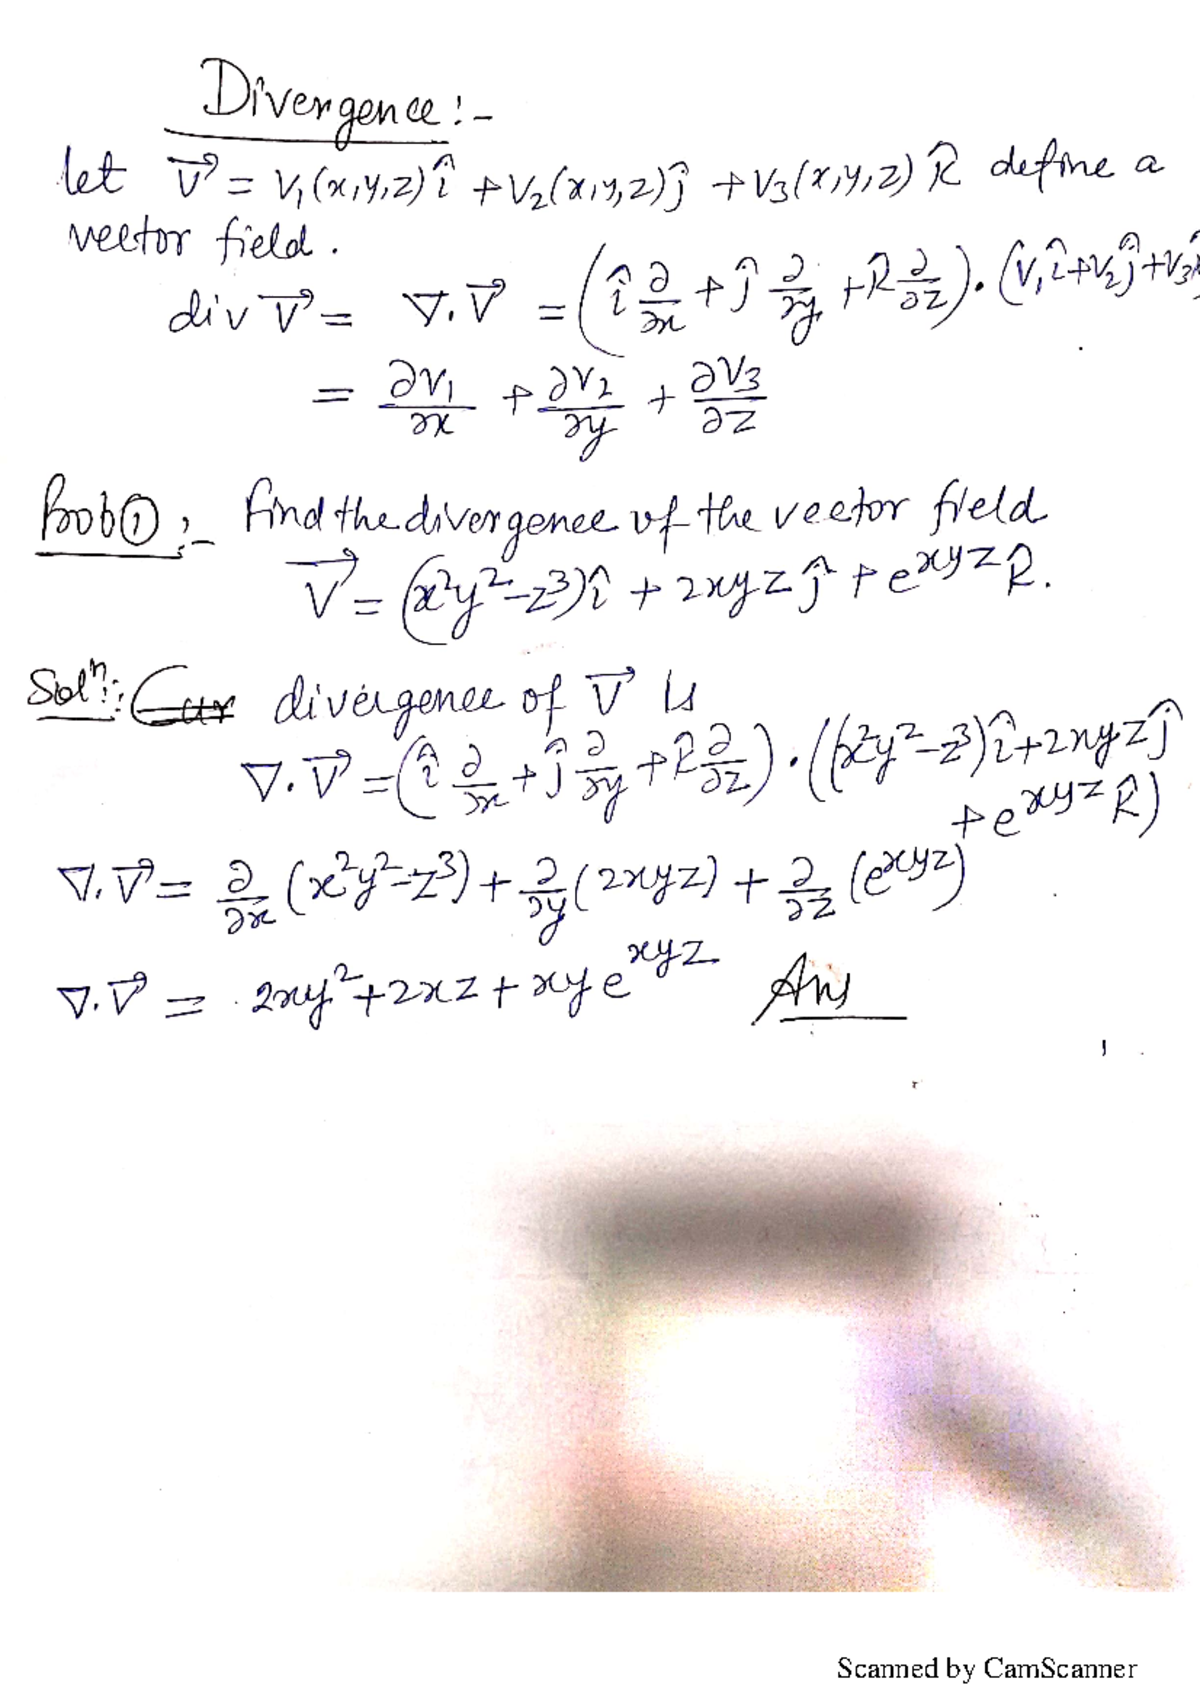 Divergence:-
let V⃗ = V₁(x,y,z)î + V₂(x,y,z)ĵ + V₃(x,y,z) k̂ define a
vector field.
div V⃗ = ∇.V⃗ = (î ∂/∂x + ĵ ∂/∂y + k̂ ∂/∂z).(V₁î+V₂ĵ+V₃k̂
= ∂V₁/∂x + ∂V₂/∂y + ∂V₃/∂z
Prob①:- find the divergence of the vector field
V⃗ = (x²y²-z³)î + 2xyz ĵ + e^xyz k̂.
Solⁿ: divergence of V⃗ is
∇.V⃗ = (î ∂/∂x + ĵ ∂/∂y + k̂ ∂/∂z).((x²y²-z³)î+2xyzĵ
+e^xyz k̂)
∇.V⃗ = ∂/∂x (x²y²-z³) + ∂/∂y (2xyz) + ∂/∂z (e^xyz)
∇.V⃗ = 2xy²+2xz+xy e^xyz Ans
Scanned by CamScanner